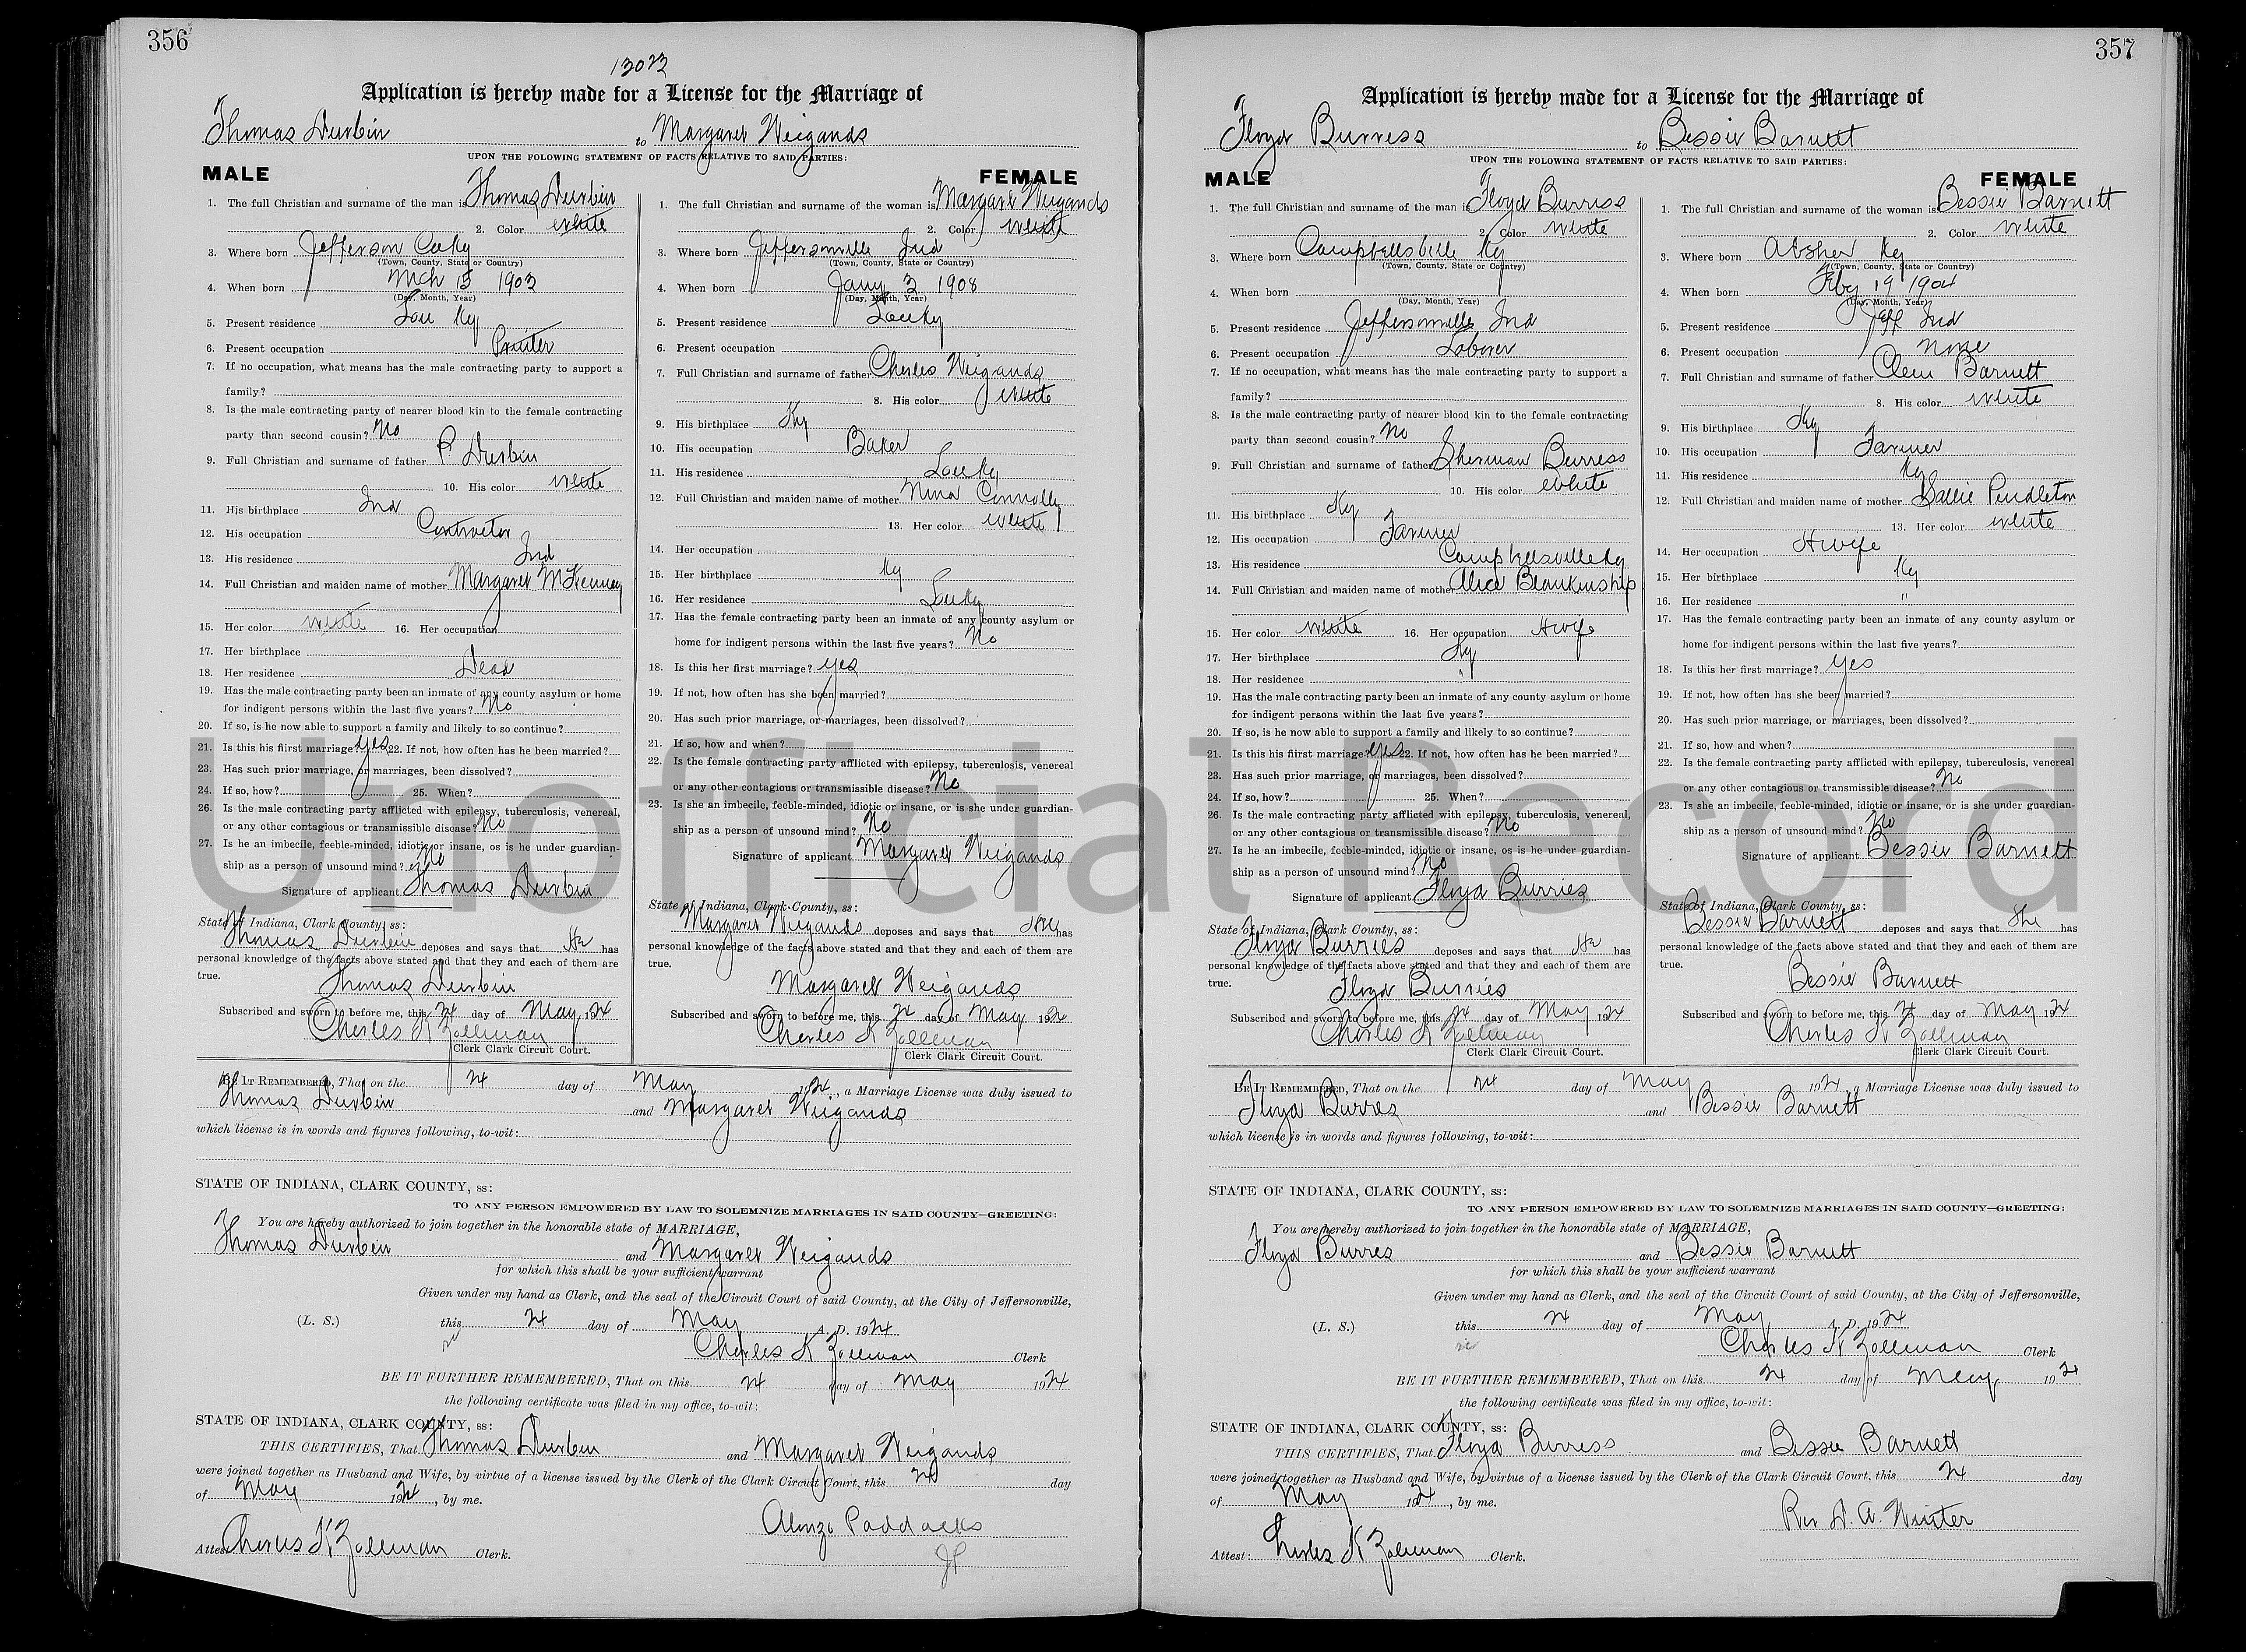 356
13023
Application is hereby made for a License for the Marriage of
Thomas Durbin to Margaret Weigands
UPON THE FOLOWING STATEMENT OF FACTS RELATIVE TO SAID PARTIES:
MALE
1. The full Christian and surname of the man is Thomas Durbin
2. Color white
3. Where born Jefferson Co Ky
(Town, County, State or Country)
4. When born Mch 15 1903
(Day, Month, Year)
5. Present residence Lou Ky
6. Present occupation Printer
7. If no occupation, what means has the male contracting party to support a
family?
8. Is the male contracting party of nearer blood kin to the female contracting
party than second cousin? No
9. Full Christian and surname of father P. Durbin
10. His color white
11. His birthplace Ind
12. His occupation Contractor
13. His residence Ind
14. Full Christian and maiden name of mother Margaret McKenney
15. Her color white 16. Her occupation
17. Her birthplace
18. Her residence Dead
19. Has the male contracting party been an inmate of any county asylum or home
for indigent persons within the last five years? No
20. If so, is he now able to support a family and likely to so continue?
21. Is this his fiirst marriage? yes 22. If not, how often has he been married?
23. Has such prior marriage, or marriages, been dissolved?
24. If so, how? 25. When?
26. Is the male contracting party afflicted with epilepsy, tuberculosis, venereal,
or any other contagious or transmissible disease? No
27. Is he an imbecile, feeble-minded, idiotic or insane, os is he under guardian-
ship as a person of unsound mind? No
Signature of applicant Thomas Durbin
State of Indiana, Clark County, ss:
Thomas Durbin deposes and says that He has
personal knowledge of the facts above stated and that they and each of them are
true.
Thomas Durbin
Subscribed and sworn to before me, this 24 day of May 1924
Charles K Zollman
Clerk Clark Circuit Court.
FEMALE
1. The full Christian and surname of the woman is Margaret Weigands
2. Color white
3. Where born Jeffersonville Ind
(Town, County, State or Country)
4. When born Jany 3 1908
(Day, Month, Year)
5. Present residence Lou Ky
6. Present occupation
7. Full Christian and surname of father Charles Weigands
8. His color white
9. His birthplace Ky
10. His occupation Baker
11. His residence Lou Ky
12. Full Christian and maiden name of mother Nina Connolly
13. Her color white
14. Her occupation
15. Her birthplace Ky
16. Her residence Lou Ky
17. Has the female contracting party been an inmate of any county asylum or
home for indigent persons within the last five years? No
18. Is this her first marriage? yes
19. If not, how often has she been married?
20. Has such prior marriage, or marriages, been dissolved?
21. If so, how and when?
22. Is the female contracting party afflicted with epilepsy, tuberculosis, venereal
or any other contagious or transmissible disease? No
23. Is she an imbecile, feeble-minded, idiotic or insane, or is she under guardian-
ship as a person of unsound mind? No
Signature of applicant Margaret Weigands
State of Indiana, Clark County, ss:
Margaret Weigands deposes and says that She has
personal knowledge of the facts above stated and that they and each of them are
true.
Margaret Weigands
Subscribed and sworn to before me, this 24 day of May 1924
Charles K Zollman
Clerk Clark Circuit Court.
BE IT REMEMBERED, That on the 24 day of May 1924, a Marriage License was duly issued to
Thomas Durbin and Margaret Weigands
which license is in words and figures following, to-wit:
STATE OF INDIANA, CLARK COUNTY, ss:
TO ANY PERSON EMPOWERED BY LAW TO SOLEMNIZE MARRIAGES IN SAID COUNTY—GREETING:
You are hereby authorized to join together in the honorable state of MARRIAGE,
Thomas Durbin and Margaret Weigands
for which this shall be your sufficient warrant
Given under my hand as Clerk, and the seal of the Circuit Court of said County, at the City of Jeffersonville,
(L. S.) this 24 day of May A. D. 1924
Charles K Zollman Clerk
BE IT FURTHER REMEMBERED, That on this 24 day of May 1924
the following certificate was filed in my office, to-wit:
STATE OF INDIANA, CLARK COUNTY, ss:
THIS CERTIFIES, That Thomas Durbin and Margaret Weigands
were joined together as Husband and Wife, by virtue of a license issued by the Clerk of the Clark Circuit Court, this 24 day
of May 1924, by me.
Alonzo Paddacks
JP
Attest Charles K Zollman Clerk.
357
Application is hereby made for a License for the Marriage of
Floyd Burress to Bessie Barnett
UPON THE FOLOWING STATEMENT OF FACTS RELATIVE TO SAID PARTIES:
MALE
1. The full Christian and surname of the man is Floyd Burriss
2. Color white
3. Where born Campbellsville Ky
(Town, County, State or Country)
4. When born
(Day, Month, Year)
5. Present residence Jeffersonville Ind
6. Present occupation Laborer
7. If no occupation, what means has the male contracting party to support a
family?
8. Is the male contracting party of nearer blood kin to the female contracting
party than second cousin? No
9. Full Christian and surname of father Sherman Burress
10. His color white
11. His birthplace Ky
12. His occupation Farmer
13. His residence Campbellsville Ky
14. Full Christian and maiden name of mother Alice Blankinship
15. Her color white 16. Her occupation Hwife
17. Her birthplace Ky
18. Her residence "
19. Has the male contracting party been an inmate of any county asylum or home
for indigent persons within the last five years?
20. If so, is he now able to support a family and likely to so continue?
21. Is this his fiirst marriage? yes 22. If not, how often has he been married?
23. Has such prior marriage, or marriages, been dissolved?
24. If so, how? 25. When?
26. Is the male contracting party afflicted with epilepsy, tuberculosis, venereal,
or any other contagious or transmissible disease? No
27. Is he an imbecile, feeble-minded, idiotic or insane, os is he under guardian-
ship as a person of unsound mind? No
Signature of applicant Floyd Burries
State of Indiana, Clark County, ss:
Floyd Burries deposes and says that He has
personal knowledge of the facts above stated and that they and each of them are
true.
Floyd Burries
Subscribed and sworn to before me, this 24 day of May 1924
Charles K Zollman
Clerk Clark Circuit Court.
FEMALE
1. The full Christian and surname of the woman is Bessie Barnett
2. Color white
3. Where born Absher Ky
(Town, County, State or Country)
4. When born Feby 19 1904
(Day, Month, Year)
5. Present residence Jeff Ind
6. Present occupation None
7. Full Christian and surname of father Clem Barnett
8. His color white
9. His birthplace Ky
10. His occupation Farmer
11. His residence Ky
12. Full Christian and maiden name of mother Sallie Pendleton
13. Her color white
14. Her occupation Hwife
15. Her birthplace Ky
16. Her residence "
17. Has the female contracting party been an inmate of any county asylum or
home for indigent persons within the last five years?
18. Is this her first marriage? yes
19. If not, how often has she been married?
20. Has such prior marriage, or marriages, been dissolved?
21. If so, how and when?
22. Is the female contracting party afflicted with epilepsy, tuberculosis, venereal
or any other contagious or transmissible disease? No
23. Is she an imbecile, feeble-minded, idiotic or insane, or is she under guardian-
ship as a person of unsound mind? No
Signature of applicant Bessie Barnett
State of Indiana, Clark County, ss:
Bessie Barnett deposes and says that She has
personal knowledge of the facts above stated and that they and each of them are
true.
Bessie Barnett
Subscribed and sworn to before me, this 24 day of May 1924
Charles K Zollman
Clerk Clark Circuit Court.
BE IT REMEMBERED, That on the 24 day of May 1924, a Marriage License was duly issued to
Floyd Burres and Bessie Barnett
which license is in words and figures following, to-wit:
STATE OF INDIANA, CLARK COUNTY, ss:
TO ANY PERSON EMPOWERED BY LAW TO SOLEMNIZE MARRIAGES IN SAID COUNTY—GREETING:
You are hereby authorized to join together in the honorable state of MARRIAGE,
Floyd Burres and Bessie Barnett
for which this shall be your sufficient warrant
Given under my hand as Clerk, and the seal of the Circuit Court of said County, at the City of Jeffersonville,
(L. S.) this 24 day of May A. D. 1924
Charles K Zollman Clerk
BE IT FURTHER REMEMBERED, That on this 24 day of May 1924
the following certificate was filed in my office, to-wit:
STATE OF INDIANA, CLARK COUNTY, ss:
THIS CERTIFIES, That Floyd Burress and Bessie Barnett
were joined together as Husband and Wife, by virtue of a license issued by the Clerk of the Clark Circuit Court, this 24 day
of May 1924, by me.
Rev A. Winter
Attest: Charles K Zollman Clerk.
Unofficial Record